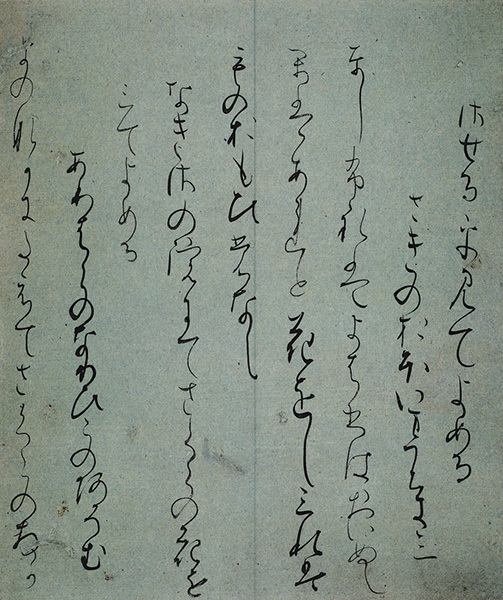 させるを見てよめる
さきのおほいまうちきみ
としふればよはひはおいぬし
かはあれと花をしみれは
ものおもひもなし
なきさの院にてさくらの花を
みてよめる
ありはらのなりひらのあそむ
よのなかにたえてさくらのなか